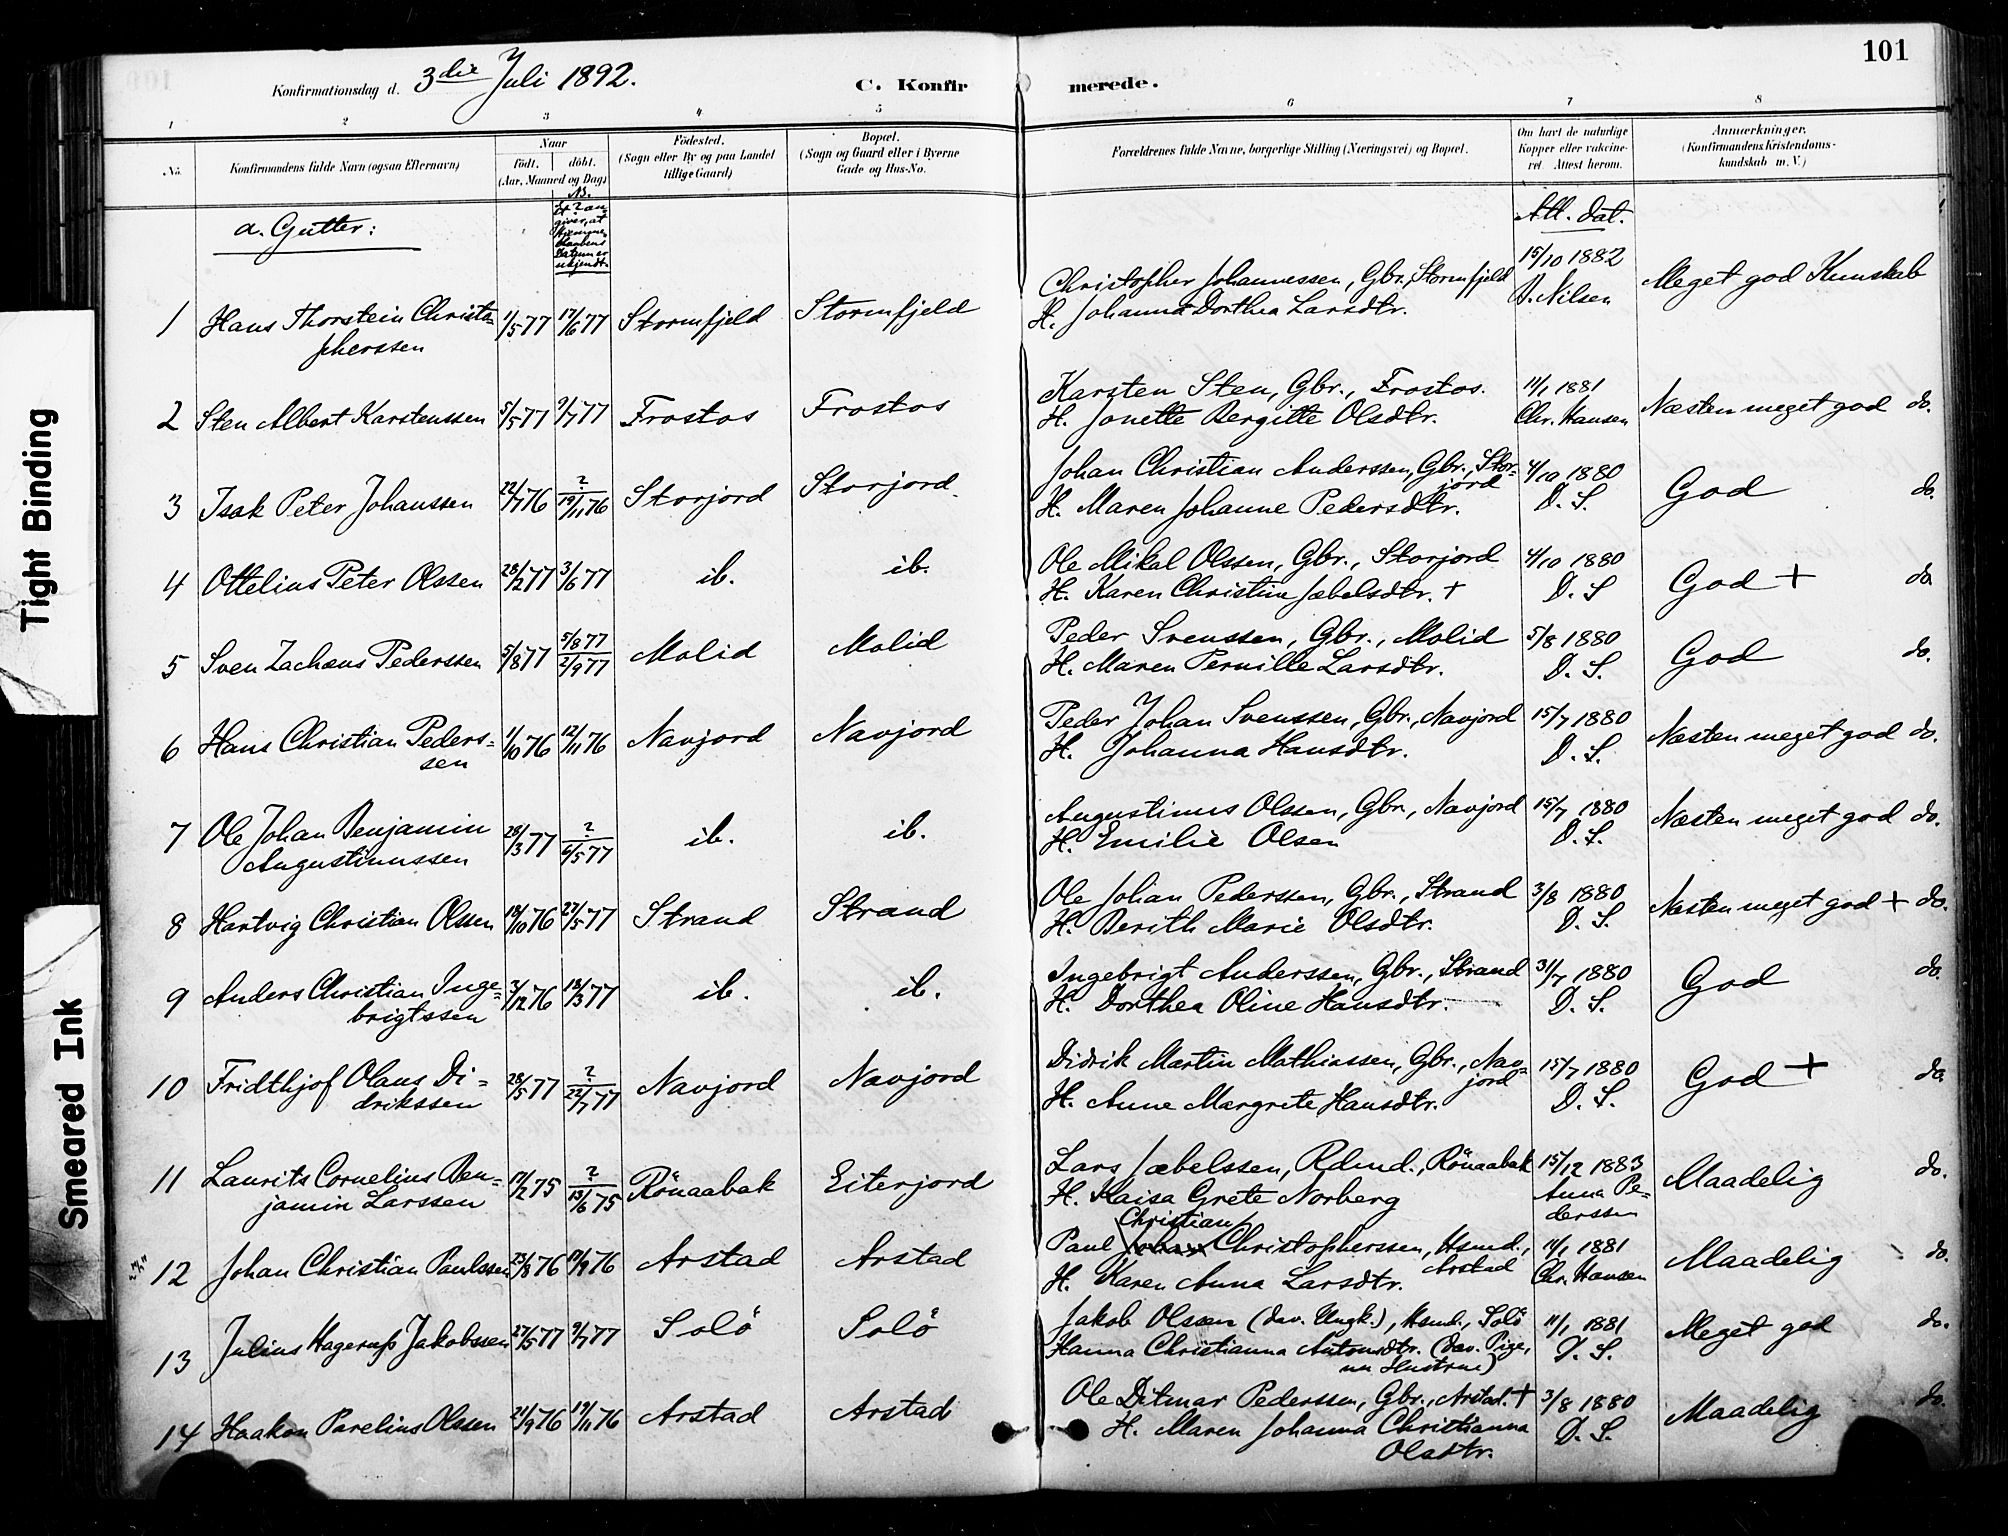 101
Konfirmationsdag d. 3die Juli 1892.
C. Konfirmerede.
1 2 3 4 5 6 7 8
No.
Konfirmandens fulde Navn (ogsaa Efternavn)
Naar
födt. döbt.
(Aar, Maaned og Dag)
Födested.
(Sogn eller By og paa Landet
tillige Gaard)
Bopæl.
(Sogn og Gaard eller i Byerne
Gade og Hus-No.
Forældrenes fulde Navne, borgerlige Stilling (Næringsvei) og Bopæl.
Om havt de naturlige
Kopper eller vakcine-
ret Attest herom.
Anmærkninger.
(Konfirmandens Kristendoms-
kundskab m. V.)
a. Gutter:
NB.
Et ? an
giver, at
Hjemme
daabens
Datum er
ukjendt.
Att. dat.
1 Hans Thorstein Christo= 1/5 77 17/6 77 Stormfjeld Stormfjeld Christopher Johannessen, Gbr., Stormfjeld 15/10 1882 Meget god Kunskab
pherssen H. Johanna Dorthea Larsdtr. D. Nilsen
2 Sten Albert Karstenssen 5/5 77 9/7 77 Frostos Frostos Karsten Sten, Gbr., Frostos. 11/1 1881 Næsten meget god do.
H. Jonette Bergitte Olsdtr. Chr. Hansen
3 Isak Peter Johanssen 22/7 76 ?/19/11 76 Storjord Storjord Johan Christian Anderssen, Gbr., Stor= 4/10 1880 God do.
jord
H. Maren Johanne Pedersdtr. D. S.
4 Ottelius Peter Olssen 28/2 77 3/6 77 ib. ib. Ole Mikal Olssen, Gbr., Storjord 4/10 1880 God + do
H. Karen Christine Jæbelsdtr. + D. S
5 Sven Zachæus Pederssen 5/8 77 5/8 77 2/9 77 Molid Molid Peder Svenssen, Gbr., Molid 5/8 1880 God do.
H. Maren Pernille Larsdtr. D. S.
6 Hans Christian Peders= 1/10 76 12/11 76 Navjord Navjord Peder Johan Svenssen, Gbr., Navjord 15/7 1880 Næsten meget god do.
sen H. Johanna Hansdtr. D. S.
7 Ole Johan Benjamin 28/3 77 ?/6/5 77 ib. ib. Augustinus Olssen, Gbr., Navjord 15/7 1880 Næsten meget god do.
Augustinussen H. Emilie Olsen D. S.
8 Hartvig Christian Olssen 18/10 76 27/5 77 Strand Strand Ole Johan Pederssen, Gbr., Strand 3/8 1880 Næsten meget god + do.
H. Berith Marie Olsdtr. D. S.
9 Anders Christian Inge= 3/12 76 18/3 77 ib. ib. Ingebrigt Anderssen, Gbr., Strand 31/7 1880 God do.
brigtssen H. Dorthea Oline Hansdtr. D. S.
10 Fridthjof Olaus Di= 28/5 77 ?/22/7 77 Navjord Navjord Didrik Martin Mathiassen, Gbr., Nav= 15/7 1880 God + do
drikssen jord
H. Anne Margrete Hansdtr. D. S.
11 Laurits Cornelius Ben= 17/2 75 ?/13/6 75 Rönaabak Eiterjord Lars Jæbelssen, Rdmd., Rönaabak 15/12 1883 Maadelig do.
jamin Larssen H. Kaisa Grete Norberg Anna Pe=
derssen
Christian
12 Johan Christian Paulssen 23/8 76 17/9 76 Arstad Arstad Paul Johan Christopherssen, Hsmd., 11/1 1881 Maadelig do.
Arstad
H. Karen Anna Larsdtr. Chr. Hansen
13 Julius Hagerup Jakobssen 27/5 77 9/7 77 Solö Solö Jakob Olssen (dav. Ungk.), Hsmd., Solö 11/1 1881 Meget god do.
Hanna Christianna Antonsdtr. (dav. Pige, D. S.
nu Hustrue)
14 Haakon Parelius Olssen 21/9 76 19/11 76 Arstad Arstad Ole Ditmar Pederssen, Gbr., Arstad. + 3/8 1880 Maadelig do.
H. Maren Johanna Christianna D. S.
Olsdtr.
Tight Binding
Smeared Ink